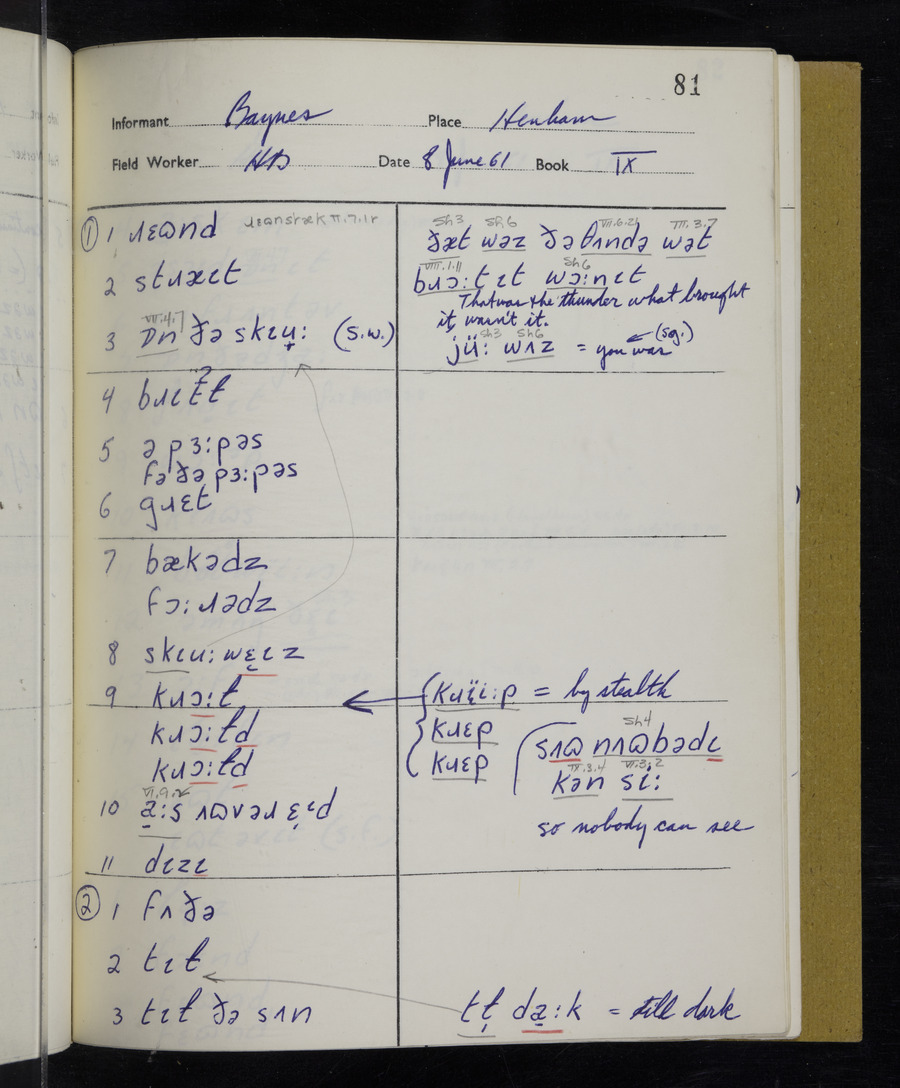 81
Informant Baynes Place Henham
Field Worker HB Date 8 June 61 Book IX
① 1 ɹɛɷnd
2 stɹæɩt
VII.4.7
3 ɒn ðə skɩu̟: (s.w.)
4 bɹɩt
5 ə pɜ:pəs
fə ðə pɜ:pəs
6 gɹɛt
7 bækədz
fɔ:ɹədz
8 skɩu: wɛ̞ɩz
9 kɹɔ:ɫ
kɹɔ:ɫd
kɹɔ:ɫd
10 a̠:s ʌɷvəɹ ɛ̞ɩd
11 dɩzɩ
② 1 fʌðə
2 tɩɫ
3 tɩɫ ðə sʌn
Sh3 Sh6 VII.6.21 III.3.7
ðæt wəz ðə θʌndə wət
VIII.1.11 Sh6
bɹɔ:t ɩt wɔ:nɩt
That was the thunder what brought
it, wasn't it.
Sh3 Sh6
jü: wʌz = you was (sg.)
kɹïi:p = by stealth
kɹɛp
kɹɛp
Sh4
sʌɷ nʌɷbədɩ
IX.3.4 VI.3.2
kən si:
so nobody can see
tɫ̩ da̠:k = till dark